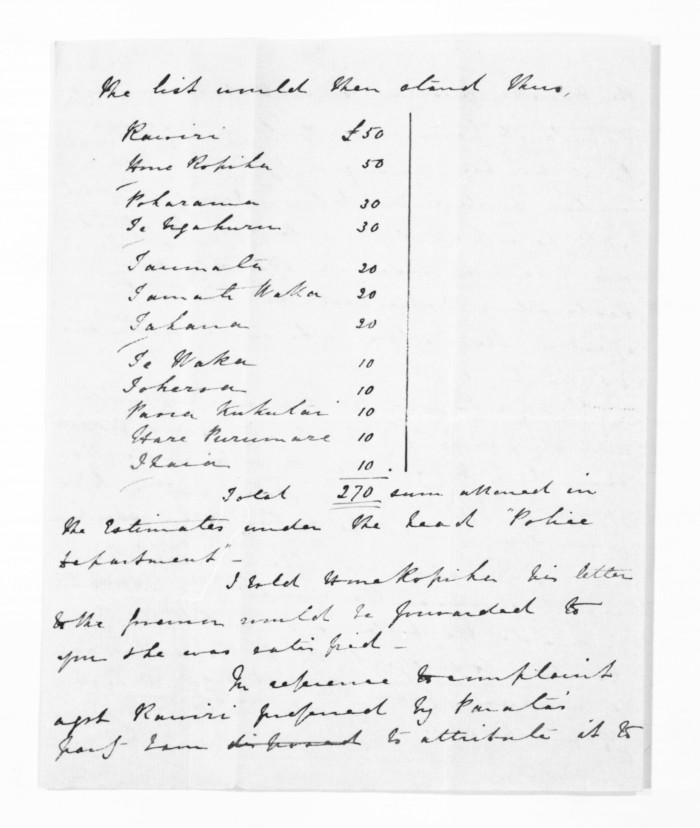 the list would then stand thus,
Rawiri £50
Hone Ropiha 50
Poharama 30
Te Ngahuru 30
Taumata 20
Tamati Waka 20
Tahana 20
Te Waka 10
Ioherua 10
Paora Kukutai 10
Hare Purumare 10
Ihaia 10.
Total 270 sum allowed in
the Estimates under the head "Police
Department" –
I told Hone Ropiha his letter
to the Governor would be forwarded to
you & he was satisfied –
In reference to complaint
agst Rawiri preferred by Parata's
party I am disposed to attribute it to